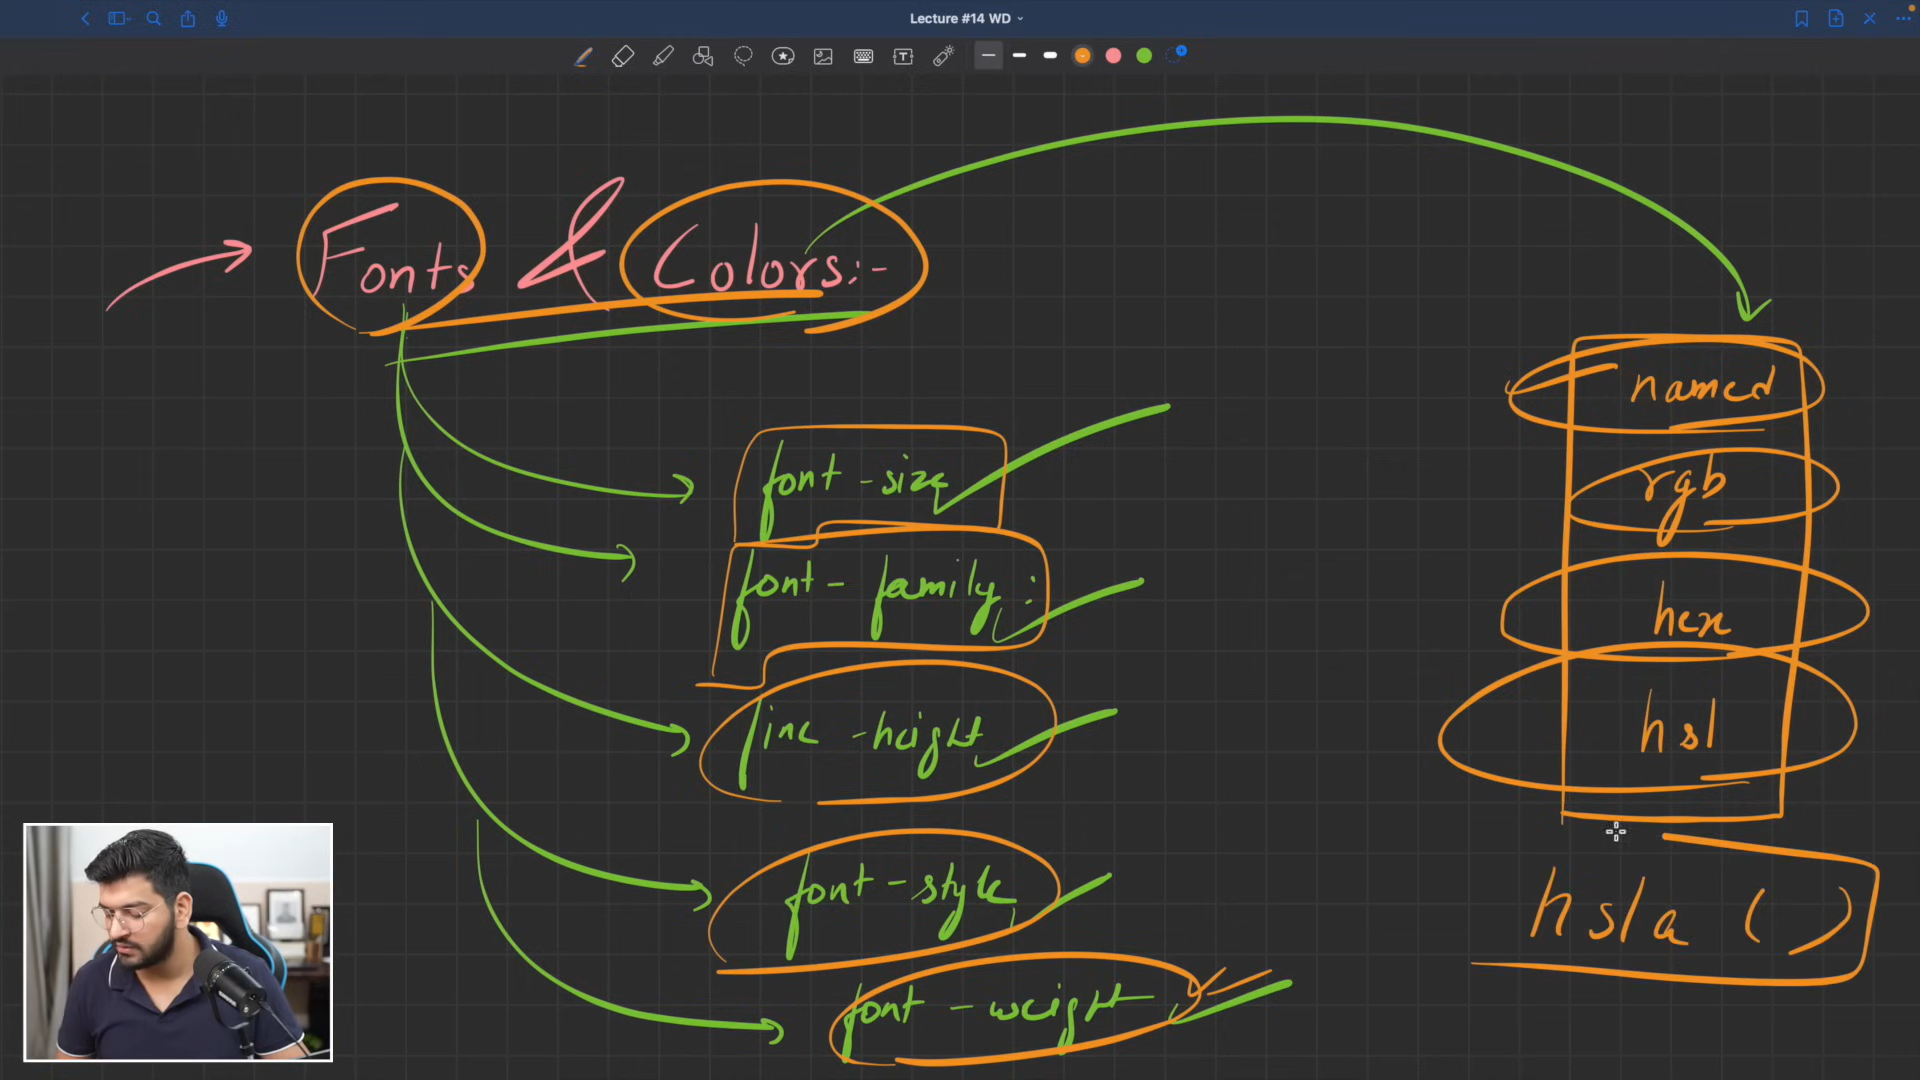 Lecture #14 WD
T
Fonts & Colors:-
font-size
font-family:
line-height
font-style
font-weight
named
rgb
hex
hsl
hsla ( )